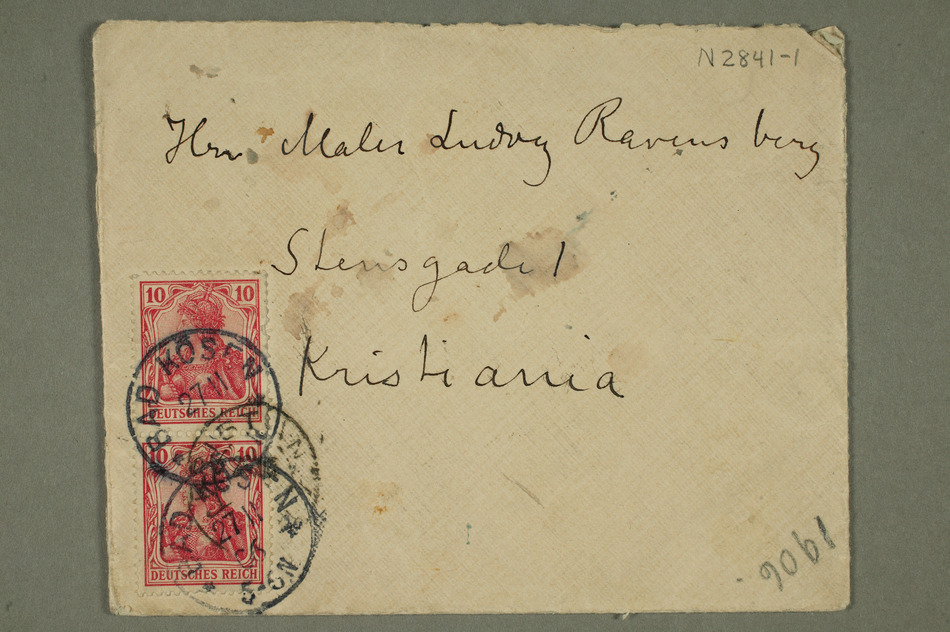 N2841-1
Hrn Maler Ludvig Ravensberg
Stensgade 1
Kristiania
10 10
DEUTSCHES REICH
BAD KÖSEN
27.VI
10 10
DEUTSCHES REICH
BAD KÖSEN
27.VI
5-6N
1906